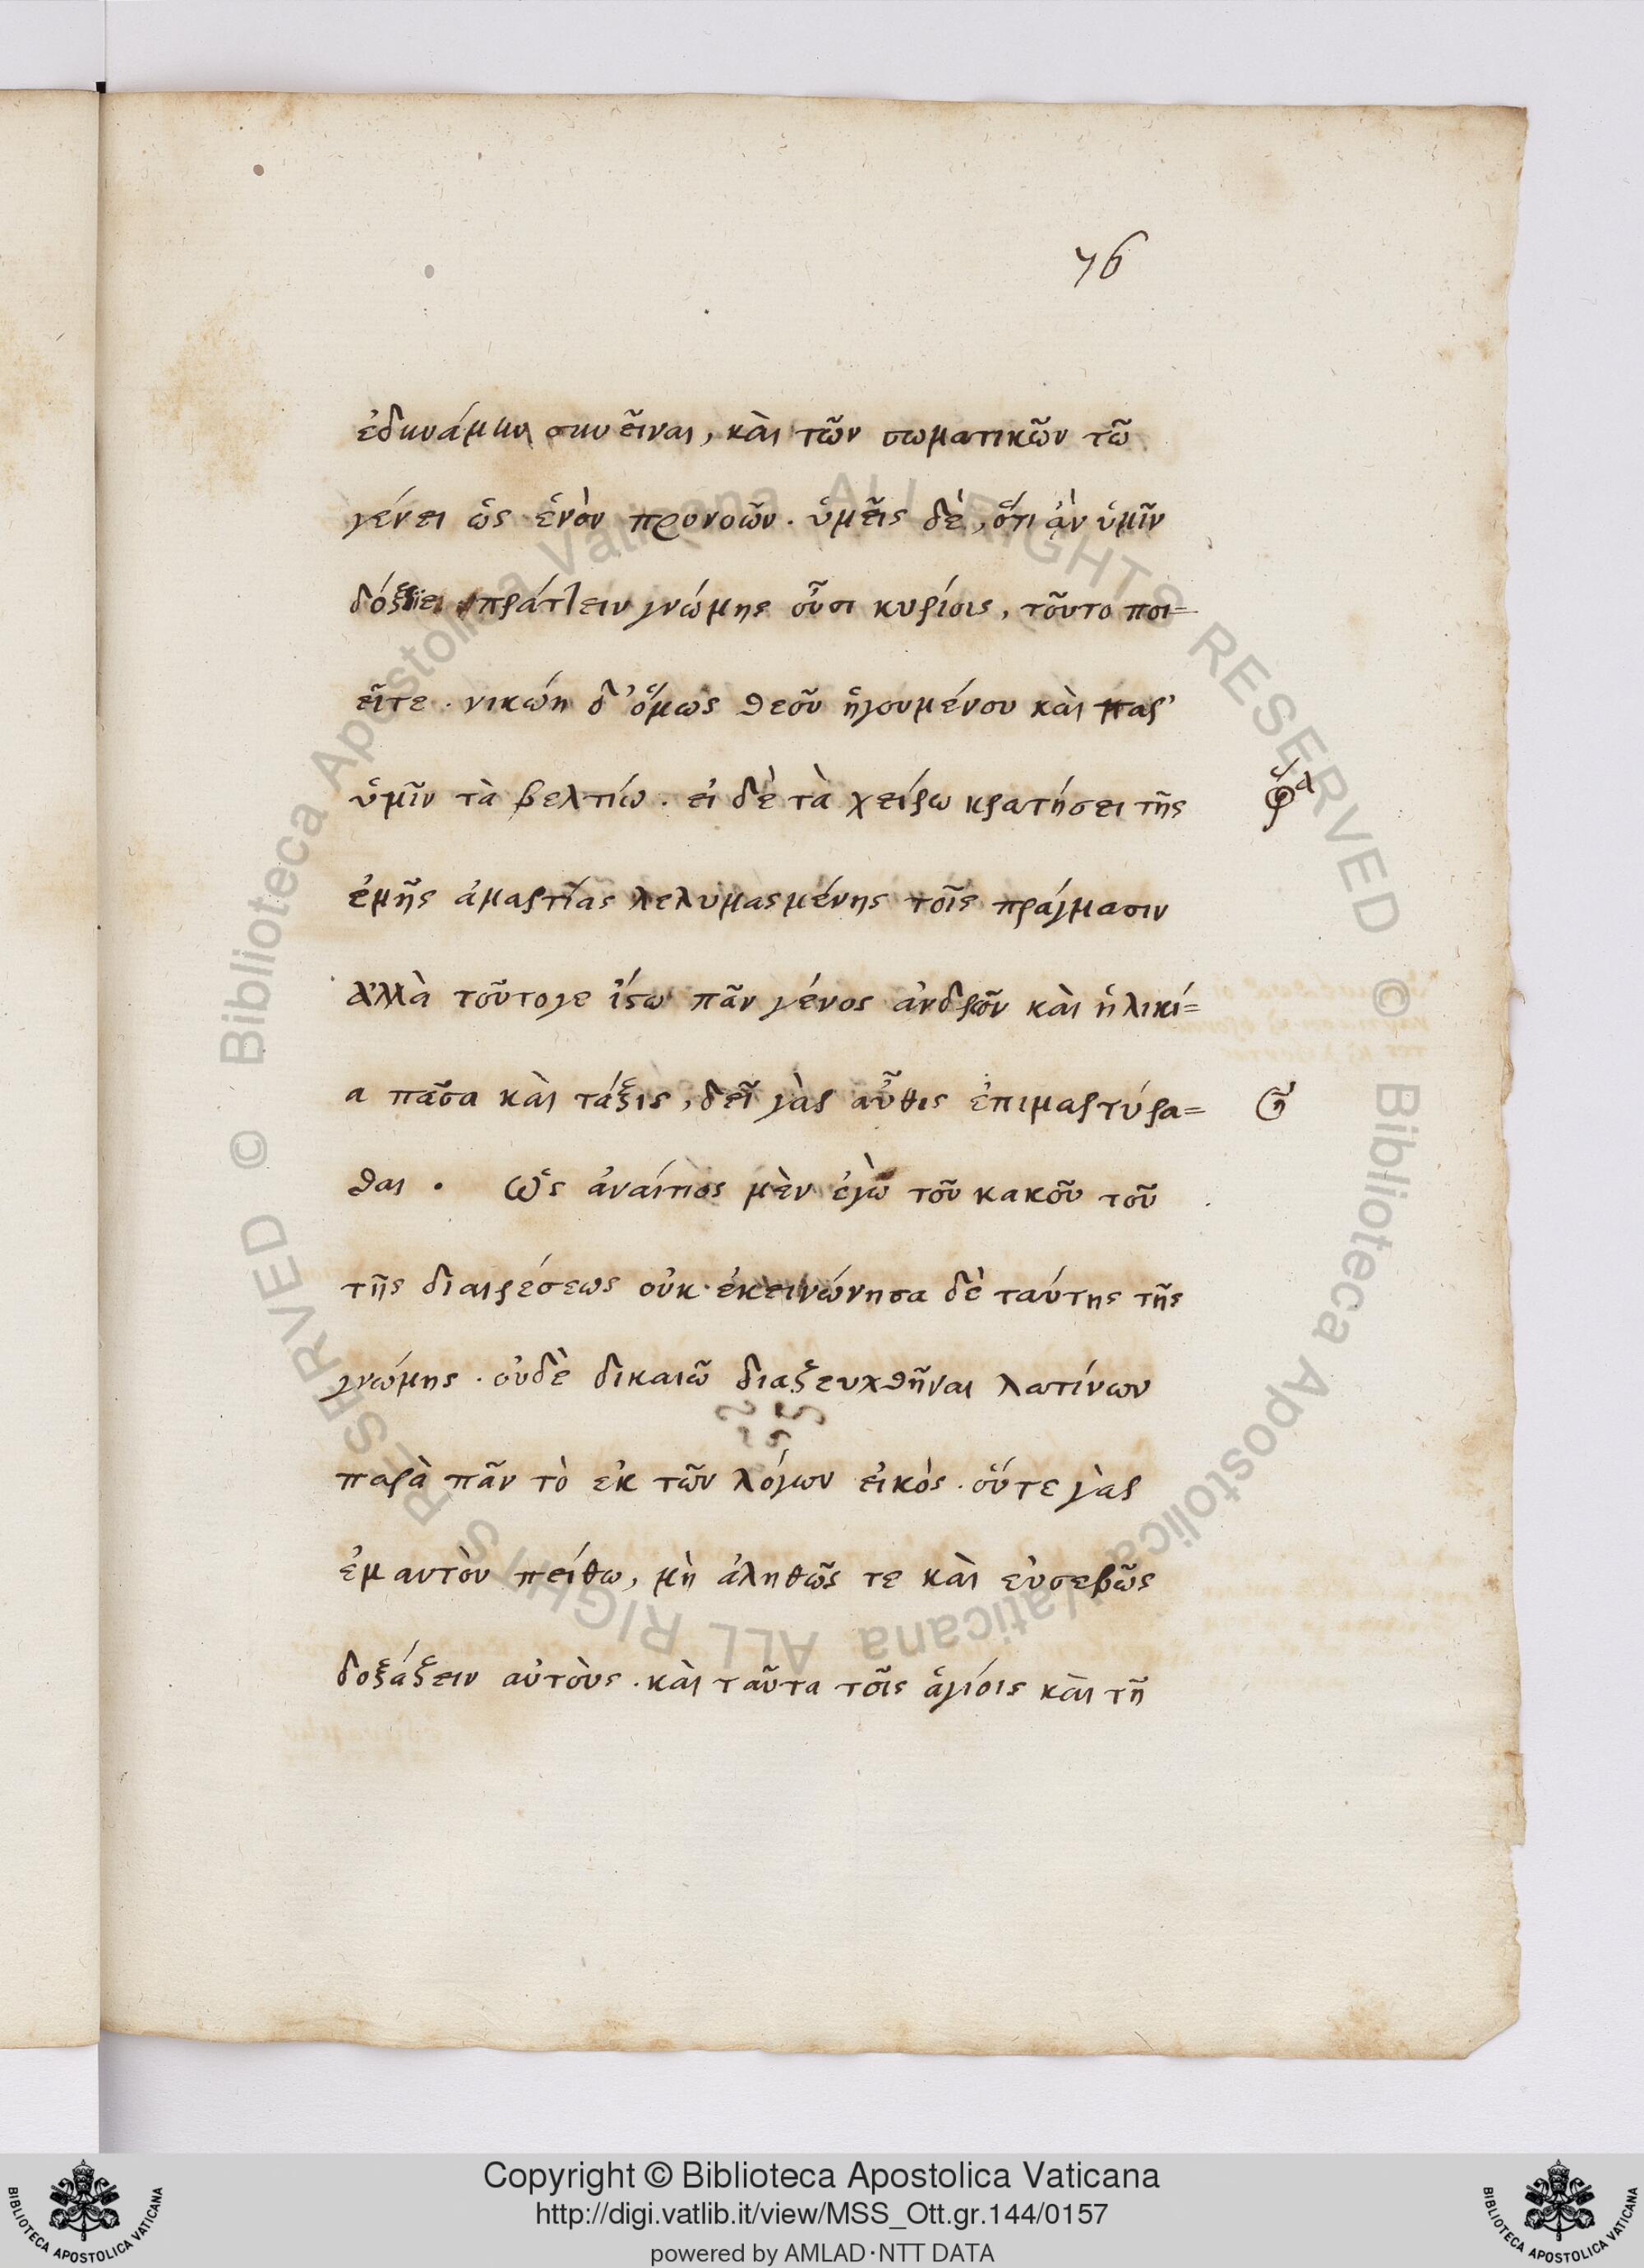 76
ἐδυνάμην συνεῖναι, καὶ τῶν σωματικῶν τῶ
γένει ὡς ἐνὸν προνοῶν. ὑμεῖς δὲ, ὅτι ἂν ὑμῖν
πράττειν γνώμης οὖσι κυρίοις, τοῦτο ποι=
εῖτε. νικώη δ' ὅμως θεοῦ ἡγουμένου καὶ παρ'
ὑμῖν τὰ βελτίω. εἰ δὲ τὰ χείρω κρατήσει τῆς
ἐμῆς ἁμαρτίας λελυμασμένης τοῖς πράγμασιν
ἀλλὰ τοῦτο γε ἴστω πᾶν γένος ἀνδρῶν καὶ ἡλικί=
α πᾶσα καὶ τάξις, δεῖ γὰρ αὖθις ἐπιμαρτύρα=
θαι. ὡς ἀναίτιος μὲν ἐγὼ τοῦ κακοῦ τοῦ
τῆς διαιρέσεως οὐκ ἐκεινώνησα δὲ ταύτης τῆς
γνώμης. οὐδὲ δικαιῶ διαζευχθῆναι λατίνων
παρὰ πᾶν τὸ ἐκ τῶν λόγων εἰκὸς. οὔτε γὰρ
ἐμαυτὸν πείθω, μὴ ἀληθῶς τε καὶ εὐσεβῶς
δοξάζειν αὐτοὺς. καὶ ταῦτα τοῖς ἁγίοις καὶ τῇ
Copyright © Biblioteca Apostolica Vaticana
http://digi.vatlib.it/view/MSS_Ott.gr.144/0157
powered by AMLAD·NTT DATA
BIBLIOTECA APOSTOLICA VATICANA
BIBLIOTECA APOSTOLICA VATICANA
© Biblioteca Apostolica Vaticana ALL RIGHTS RESERVED © Biblioteca Apostolica Vaticana ALL RIGHTS RESERVED